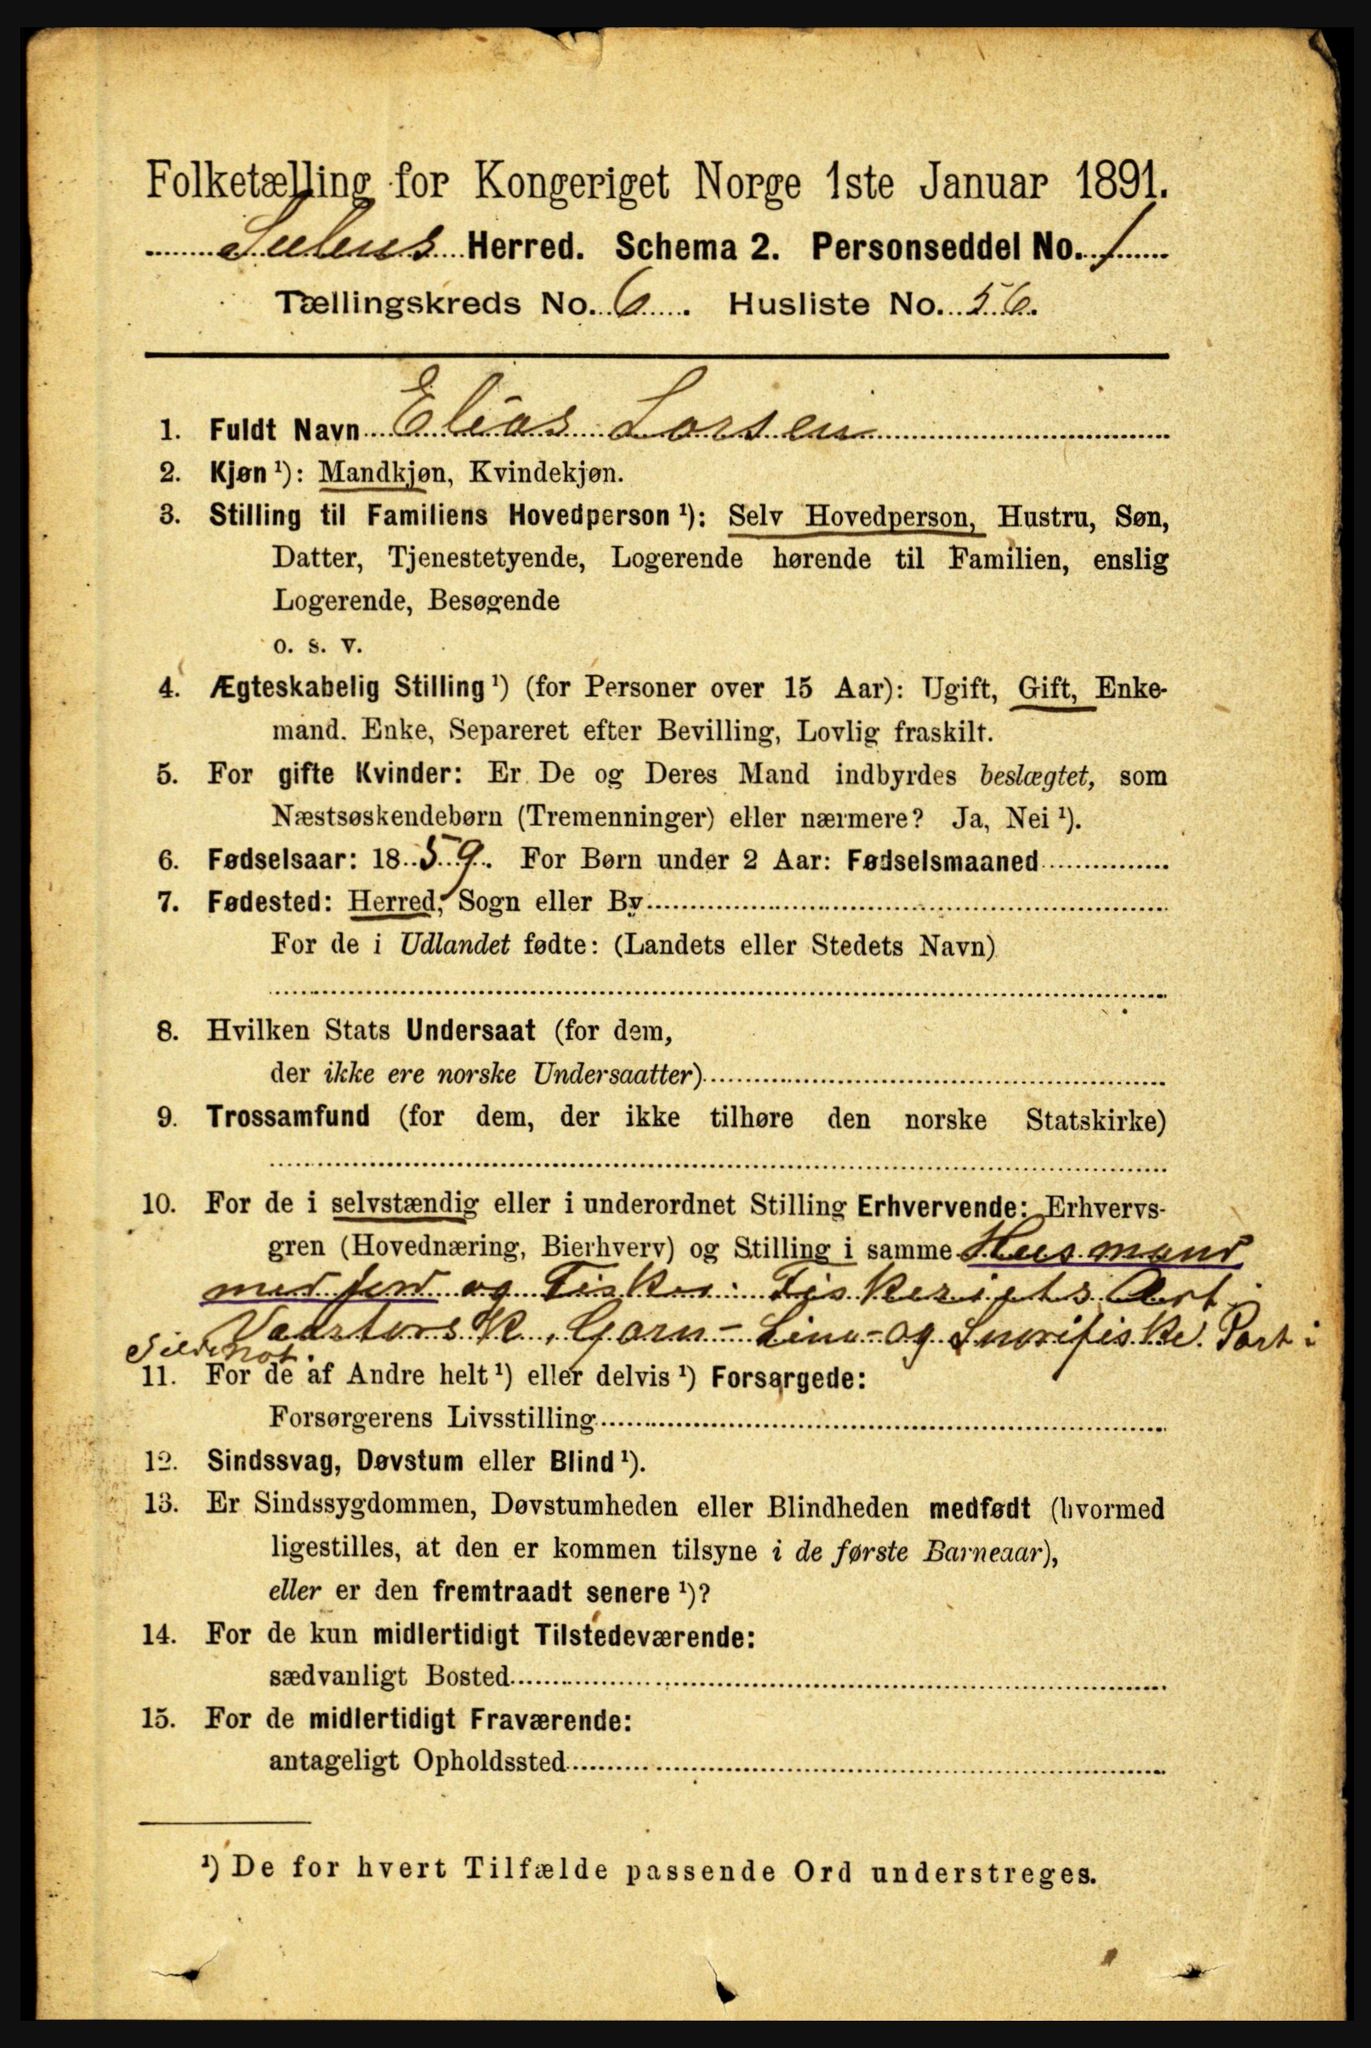 Folketælling for Kongeriget Norge 1ste Januar 1891.
Herred. Schema 2. Personseddel No. 1
Tællingskreds No. 6. Husliste No. 56.
1. Fuldt Navn Elias Larsen
2. Kjøn ¹): Mandkjøn, Kvindekjøn.
3. Stilling til Familiens Hovedperson ¹): Selv Hovedperson, Hustru, Søn,
Datter, Tjenestetyende, Logerende hørende til Familien, enslig
Logerende, Besøgende
o. s. v.
4. Ægteskabelig Stilling ¹) (for Personer over 15 Aar): Ugift, Gift, Enke-
mand. Enke, Separeret efter Bevilling, Lovlig fraskilt.
5. For gifte Kvinder: Er De og Deres Mand indbyrdes beslægtet, som
Næstsøskendebørn (Tremenninger) eller nærmere? Ja, Nei ¹).
6. Fødselsaar: 1859. For Børn under 2 Aar: Fødselsmaaned
7. Fødested: Herred, Sogn eller By
For de i Udlandet fødte: (Landets eller Stedets Navn)
8. Hvilken Stats Undersaat (for dem,
der ikke ere norske Undersaatter)
9. Trossamfund (for dem, der ikke tilhøre den norske Statskirke)
10. For de i selvstændig eller i underordnet Stilling Erhvervende: Erhvervs-
gren (Hovednæring, Bierhverv) og Stilling i samme Husmand
med jord og Fisker. Fiskeriets Art:
Vaartorsk, Garn- Line- og Snørefiske. Part i
Sildenot.
11. For de af Andre helt ¹) eller delvis ¹) Forsørgede:
Forsørgerens Livsstilling
12. Sindssvag, Døvstum eller Blind ¹).
13. Er Sindssygdommen, Døvstumheden eller Blindheden medfødt (hvormed
ligestilles, at den er kommen tilsyne i de første Barneaar),
eller er den fremtraadt senere ¹)?
14. For de kun midlertidigt Tilstedeværende:
sædvanligt Bosted
15. For de midlertidigt Fraværende:
antageligt Opholdssted
¹) De for hvert Tilfælde passende Ord understreges.